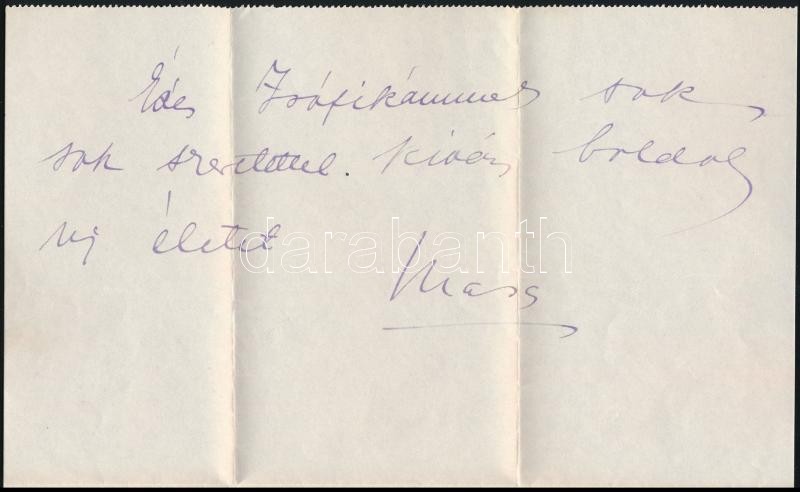 Édes Zsófikámnak sok
sok szeretettel. Kíván boldog
uj életet
darabanth